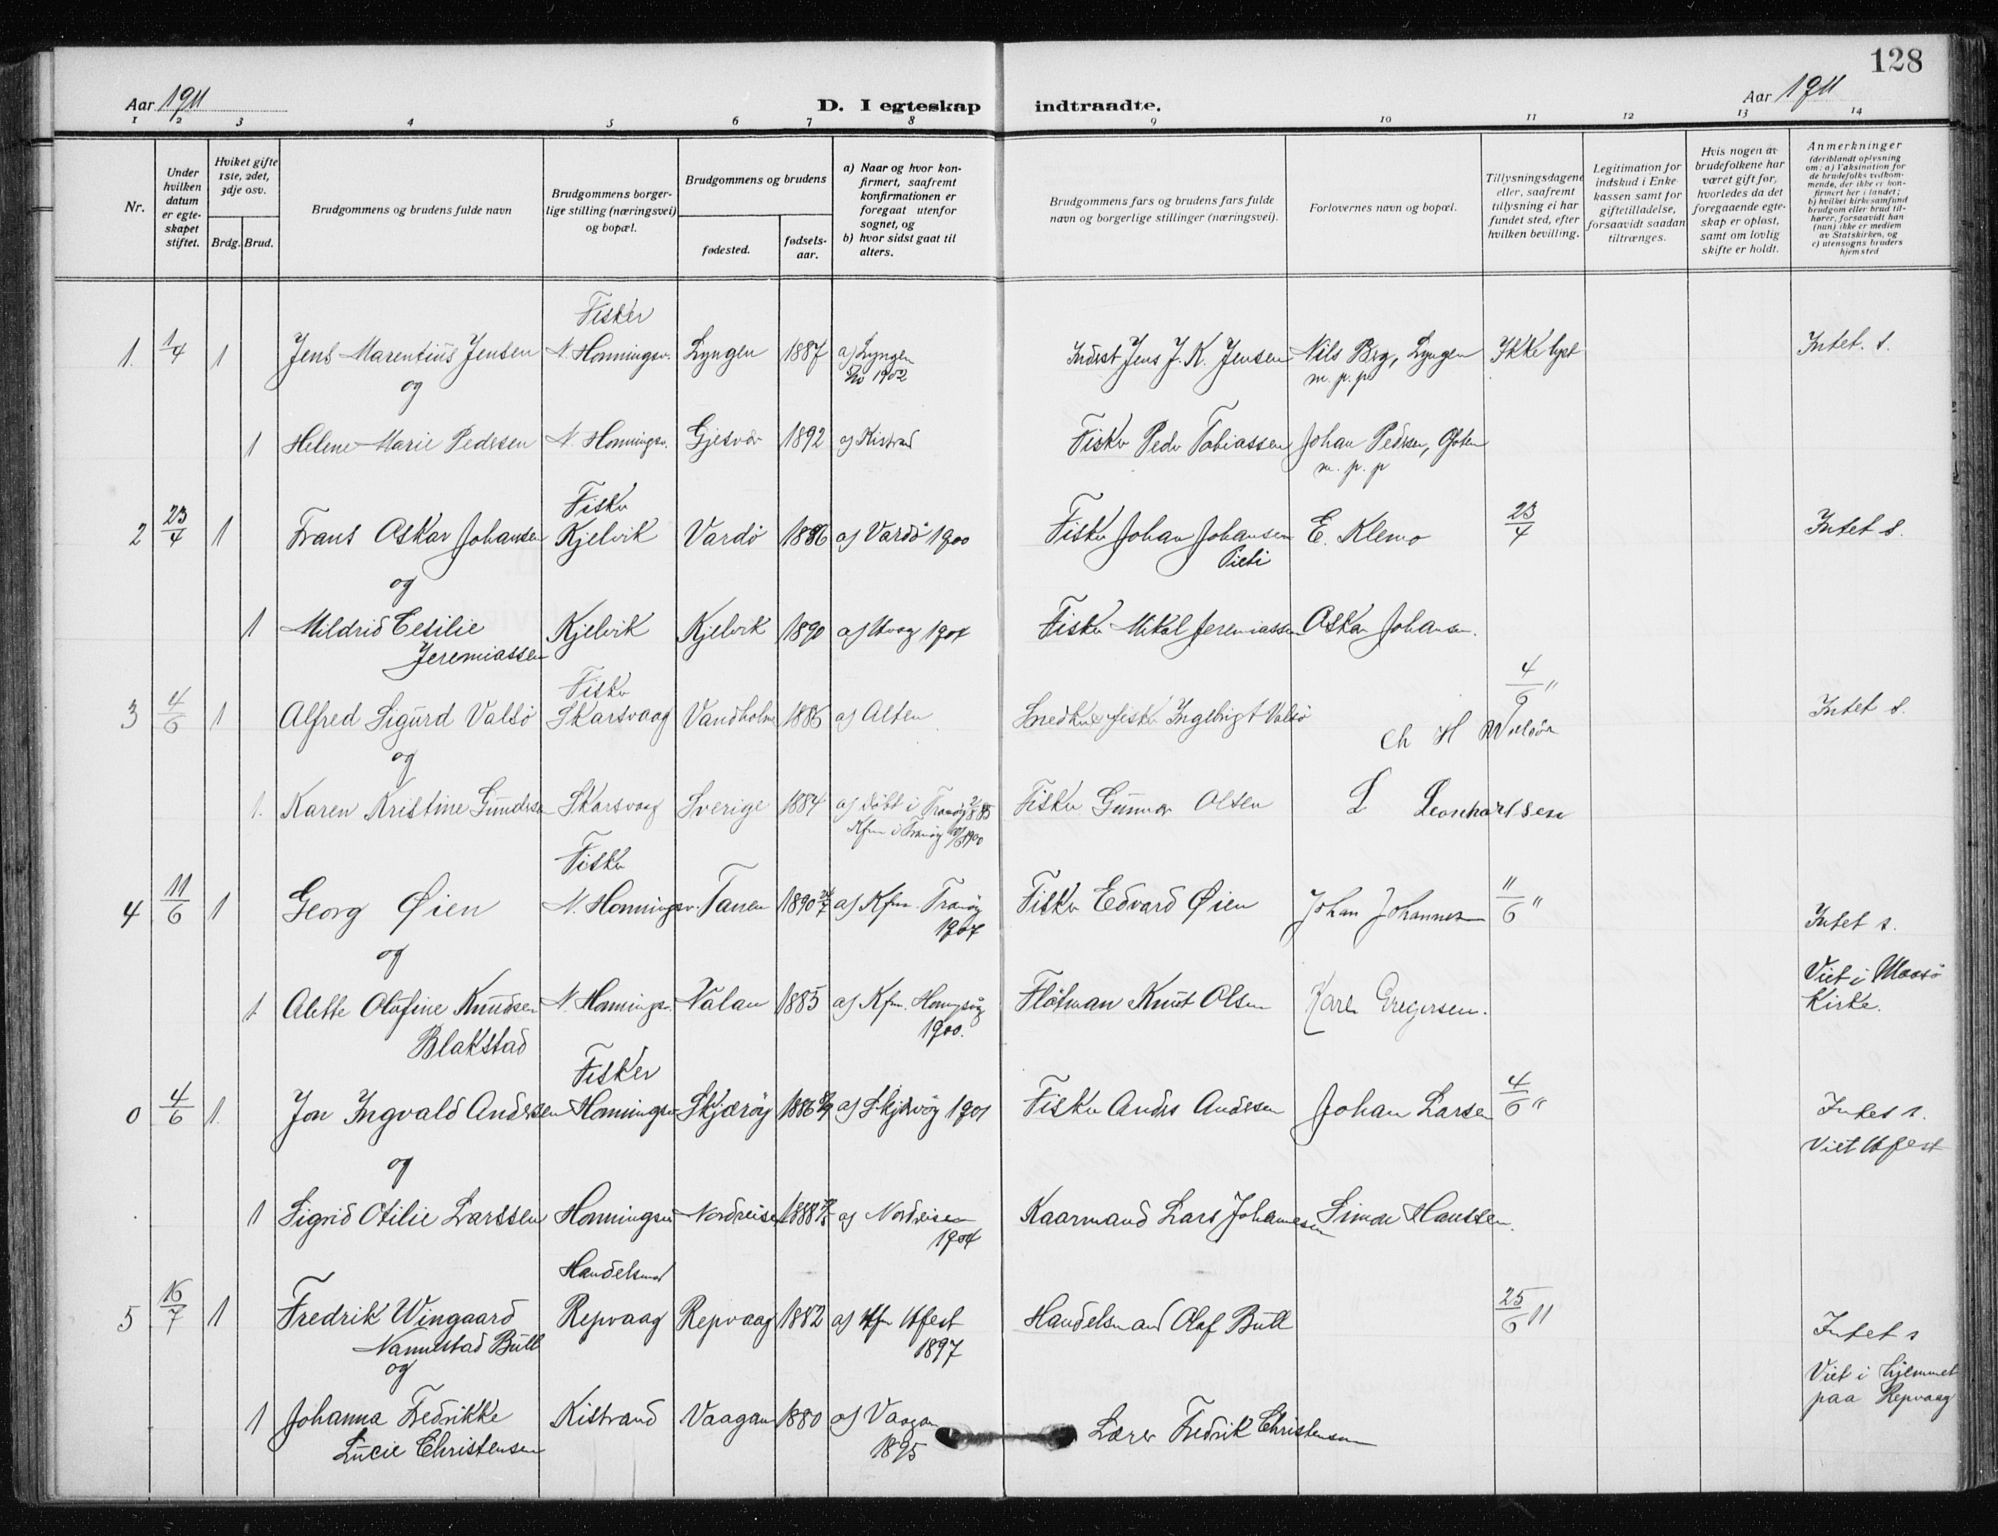 128
Aar 1911
D. I egteskap indtraadte.
Aar 1911
1 2 3 4 5 6 7 8 9 10 11 12 13 14
Nr.
Under hvilken datum er egteskapet stiftet.
Hvilket gifte 1ste, 2det, 3dje osv.
Brdg. Brud.
Brudgommens og brudens fulde navn
Brudgommens borgerlige stilling (næringsvei) og bopæl.
Brudgommens og brudens
fødested.
fødselsaar.
a) Naar og hvor konfirmert, saafremt konfirmationen er foregaat utenfor sognet, og
b) hvor sidst gaat til alters.
Brudgommens fars og brudens fars fulde navn og borgerlige stillinger (næringsvei).
Forlovernes navn og bopæl.
Tillysningsdagene eller, saafremt tillysning ei har fundet sted, efter hvilken bevilling.
Legitimation for indskud i Enkekassen samt for giftetilladelse, forsaavidt saadan tiltrænges.
Hvis nogen av brudefolkene har været gift før, hvorledes da det foregaaende egteskap er opløst, samt om lovlig skifte er holdt.
Anmerkninger
(deriblandt oplysning om: a) Vaksination for de brudefolks vedkommende, der ikke er konfirmert her i landet; b) hvilket kirkesamfund brudgom eller brud tilhører, forsaavidt han (hun) ikke er medlem av Statskirken, og c) utensogns bruders hjemsted
Fisker
1. 1/4 1 Jens Marentius Jensen N. Honningsv. Lyngen 1887 a) Lyngen 1902 Inderst Jens J. K. Jensen Nils Berg, Lyngen Ikke lyst Intet s.
m. p. p.
og
1 Helene Marie Pedersen N. Honningsv. Gjesvær 1892 a) Kistrand Fisker Peder Tobiassen Johan Pedersen,
m. p. p
Fisker
2 23/4 1 Frans Oskar Johansen Kjelvik Vardö 1886 a) Vardö 1900 Fisker Johan Johansen E. Klemo 23/4 Intet s.
Pieti
og
1 Mildrid Cesilie Kjelvik Kjelvik 1890 a) 1904 Fisker Mikal Jeremiassen Oskar Johansen.
Jeremiassen
Fisker
3 4/6 1 Alfred Sigurd Valsö Skarsvaag Vandholm 1885 a) Alten Snedker & fisker Ingebrigt Valsö Ch H Valsöe 4/6 " Intet s.
og
1. Karen Kristine Gundersen Skarsvaag Sverige 1884 a) döbt i Tranöy Fisker Gunnar Olsen L Leonhartsen
Kfm i Tranöy 1900
Fisker
4 11/6 1 Georg Øien N. Honningsv. Tanen 1890 a) Kfm. Tranöy Fisker Edvard Øien Johan Johannesen 11/6 " Intet s.
1904
og
1 Alette Olufine Knudsen N. Honningsv. Valan 1885 a) Kfm. Honningsvåg Flötman Knut Olsen Karl Gregersen. Viet i Maasö Kirke.
Blakstad 1900.
Fisker
0 4/6 1. Jon Ingvald Andersen Honningsv. Skjærvöy 1886 a) Skjærvöy 1901 Fisker Anders Andersen Johan Larsen 4/6 " Intet s.
Viet Hfest
og
1 Sigrid Otilie Larssen Honningsv Nordreisen 1888 a) Nordreisen Kaarmand Lars Johannesen Simon Hanssen.
1904
Handelsmd
5 16/7 1 Fredrik Wingaard Repvaag Repvaag 1882 a) Kfm Hfest Handelsmand Olaf Bull 25/6 11 Intet s
Nannestad Bull 1897
og
Viet i hjemmet paa Repvaag
1 Johanna Fredrikke Kistrand Vaagan 1880 a) Vaagan Lærer Fredrik Christensen
Lucie Christensen 1895